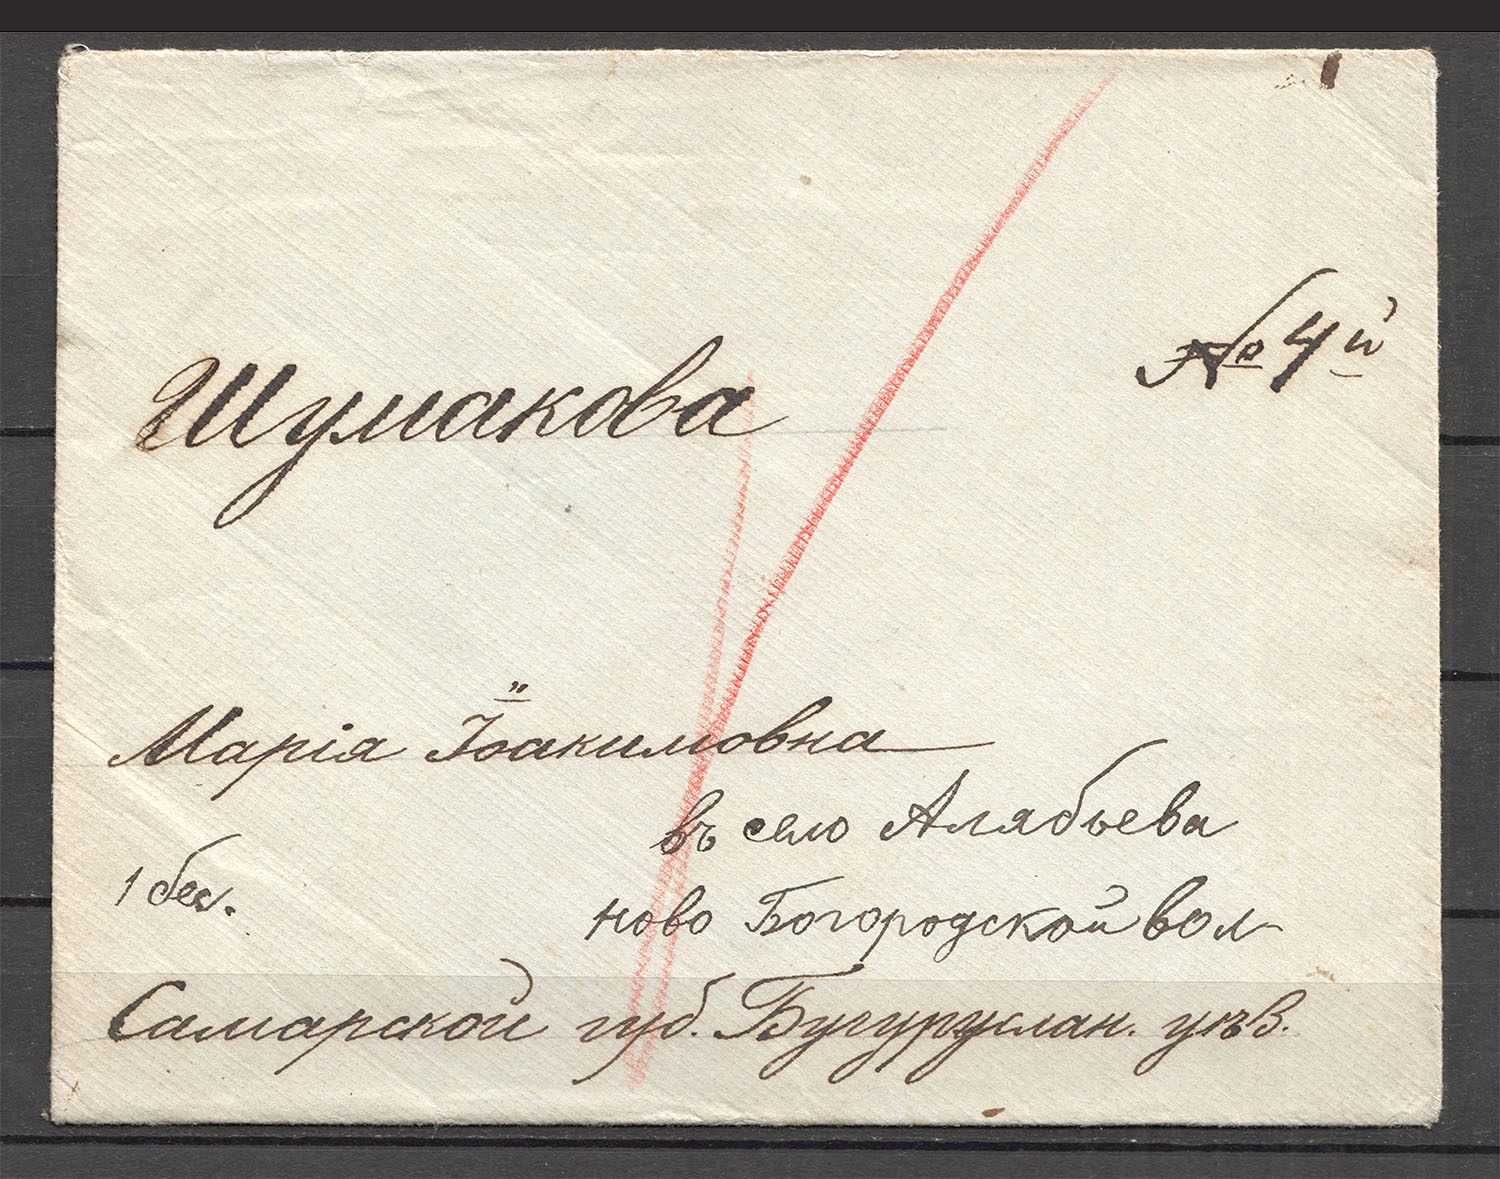 № 4й
Шумакова
Марія Іоакимовна
въ село Алябьева
1 бес.
ново Богородской вол
Самарской губ. Бугуруслан. уѣз.